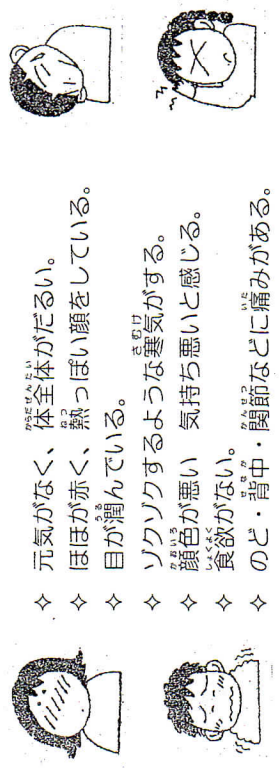 ✧ 元気がなく、体全体がだるい。
✧ ほほが赤く、熱っぽい顔をしている。
✧ 目が潤んでいる。
✧ ゾクゾクするような寒気がする。
✧ 顔色が悪い 気持ち悪いと感じる。
✧ 食欲がない。
✧ のど・背中・関節などに痛みがある。